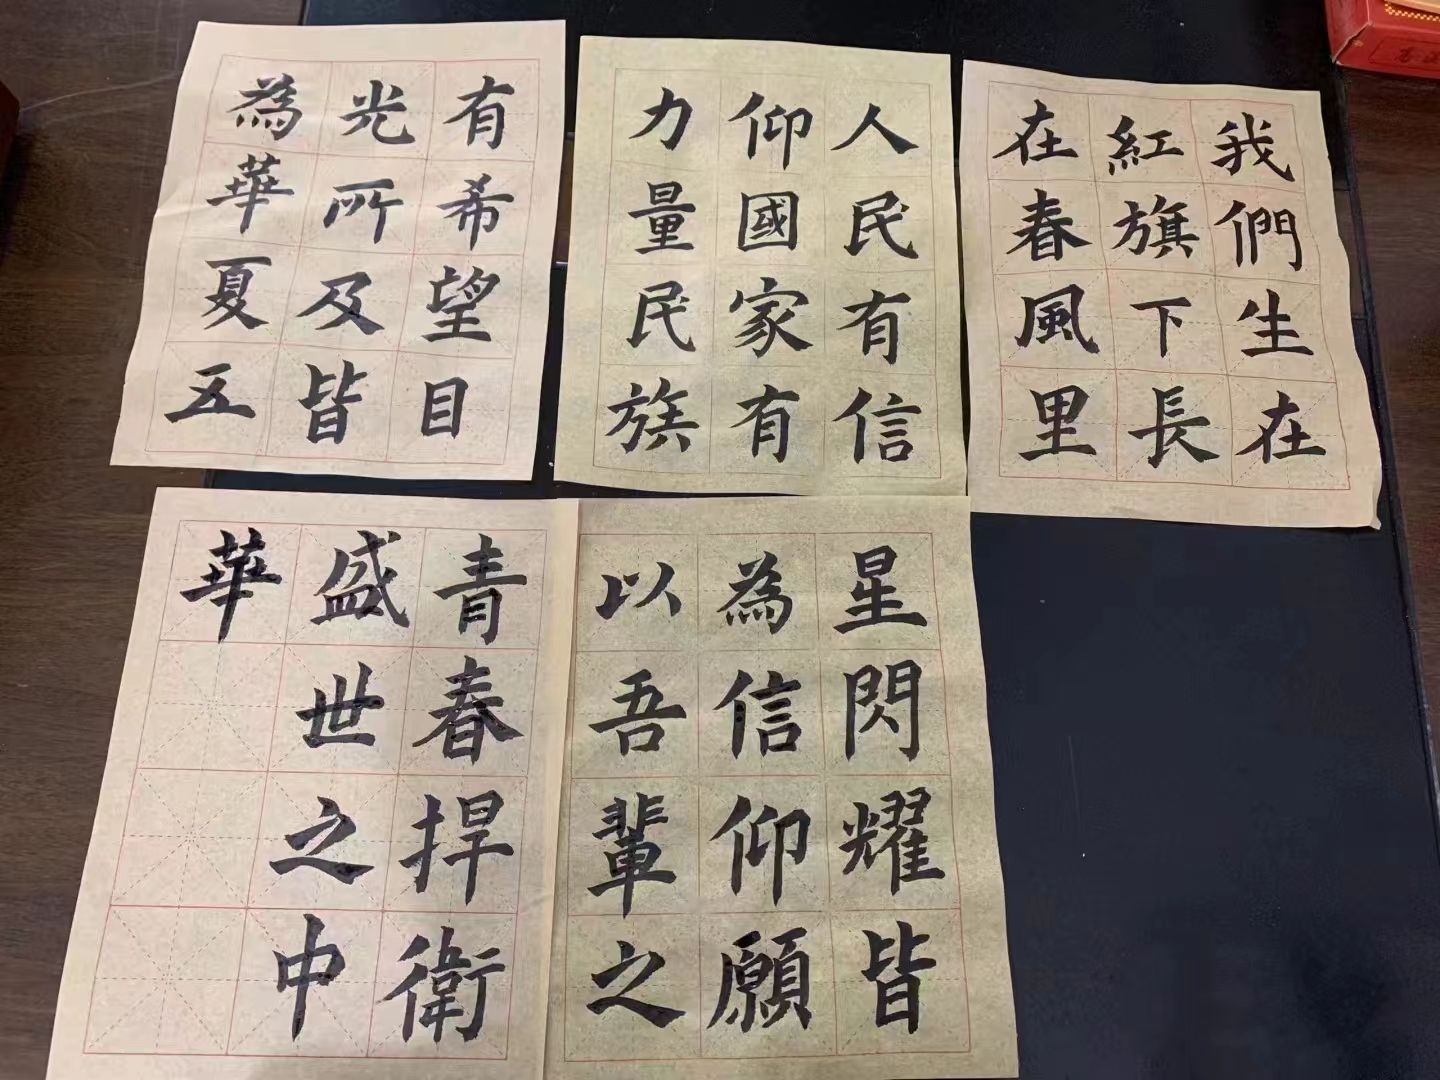 我們生在
紅旗下長
在春風里
人民有信
仰國家有
力量民族
有希望目
光所及皆
為華夏五
星閃耀皆
為信仰願
以吾輩之
青春捍衛
盛世之中
華